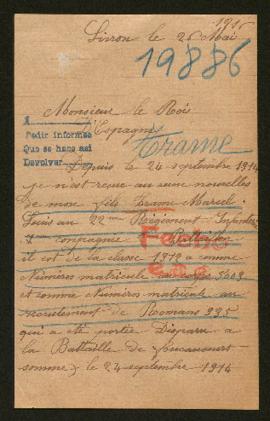 1916
Livron le 26 Mai
19886
Monsieur le Roi
d'Espagne
A
Pedir informes
Que se hace asi
Devolver
Frame
Depuis le 24 septembre 1914
je n'est reçue aucune nouvelles
de mon fils Frame Marcel
Louis au 22me Régiment Infanterie
compagnie Bataillon
il est de la classe 1912 a comme
Numéros matricule au corps
et comme Numéros matricule au
recrutement de Romans 995
qui a été portée Disparu a
la Bataille de foucaucourt
somme le 24 septembre 1914